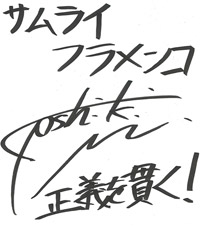 サムライ
フラメンコ
正義を貫く!